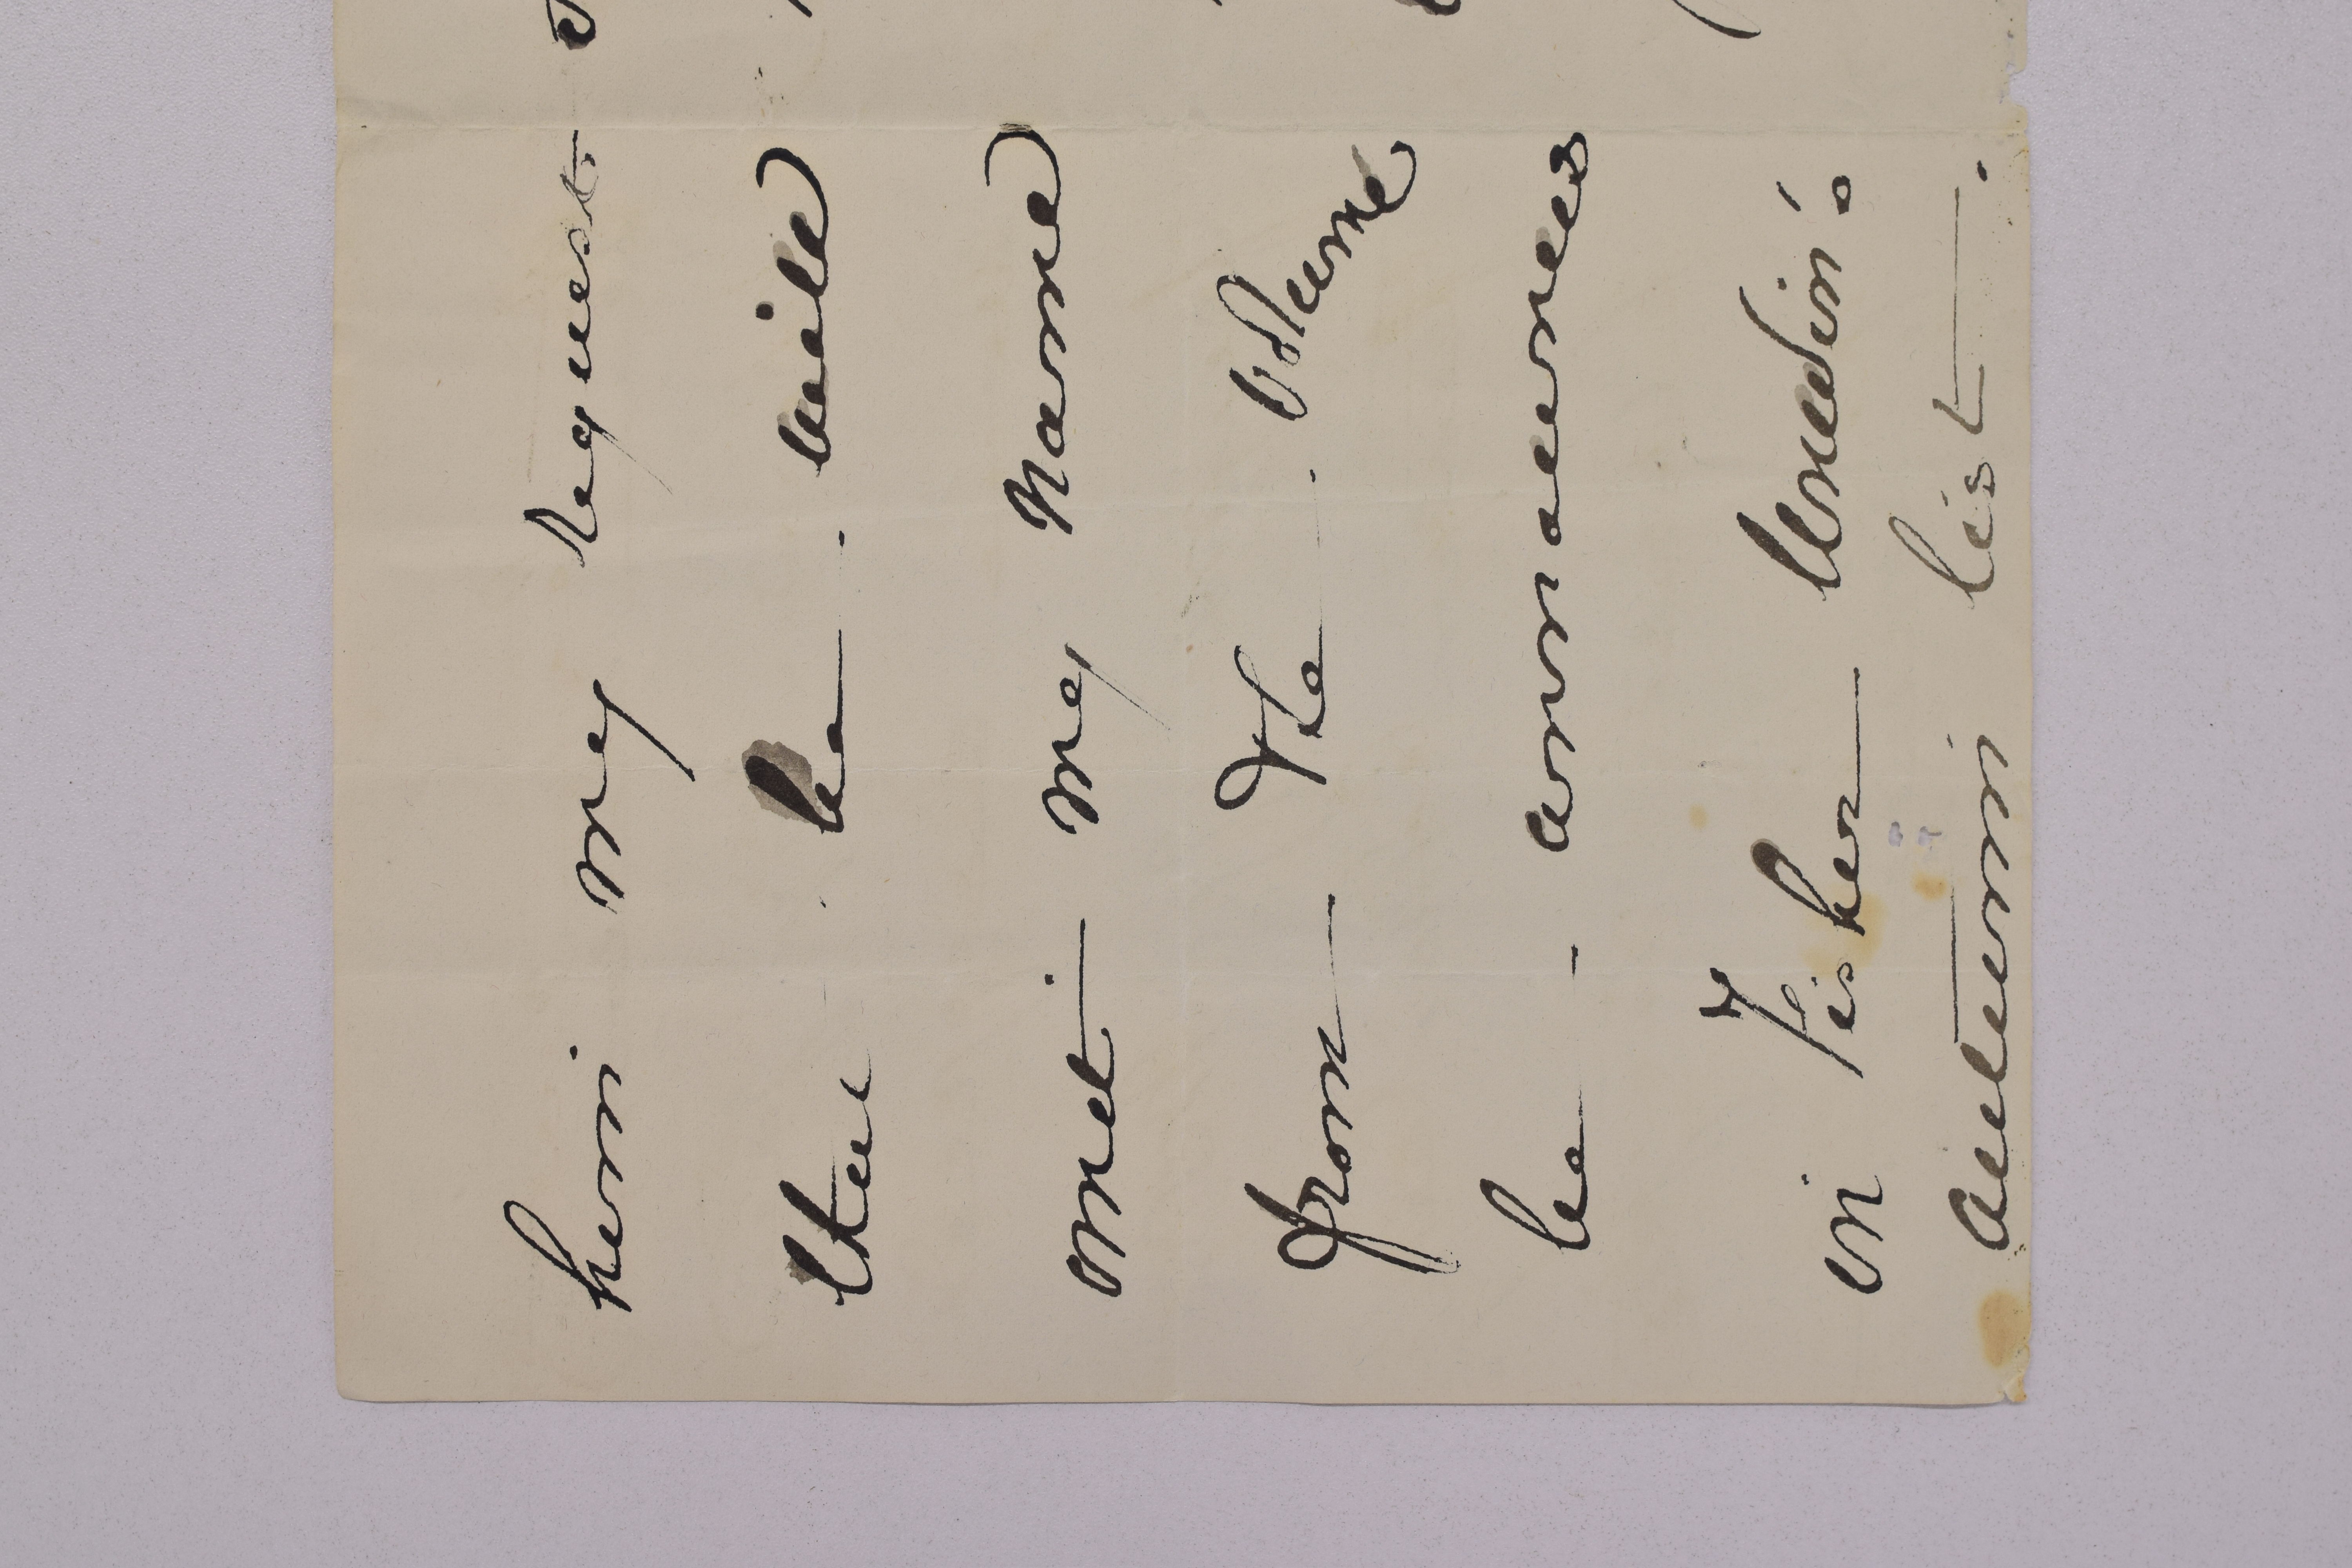 him my request
that he will
omit my name
from the volume
be announces
in Fisher Unwin's
autumn list.